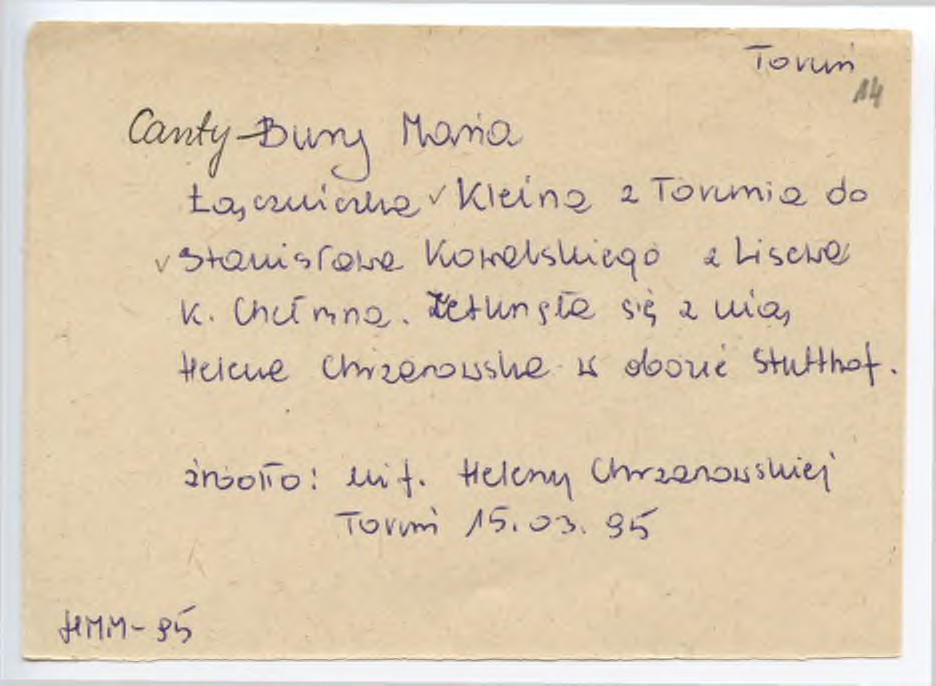 Toruń
14
Canty-Bury Maria
Łączniczka v Kleina z Torunia do
v Stanisława Kowalskiego z Lisewa
k. Chełmna. Zetknęła się z nią
Helena Chrzanowska w obozie Stutthof.
źródło: inf. Heleny Chrzanowskiej
Toruń 15.03.95
HMM-95